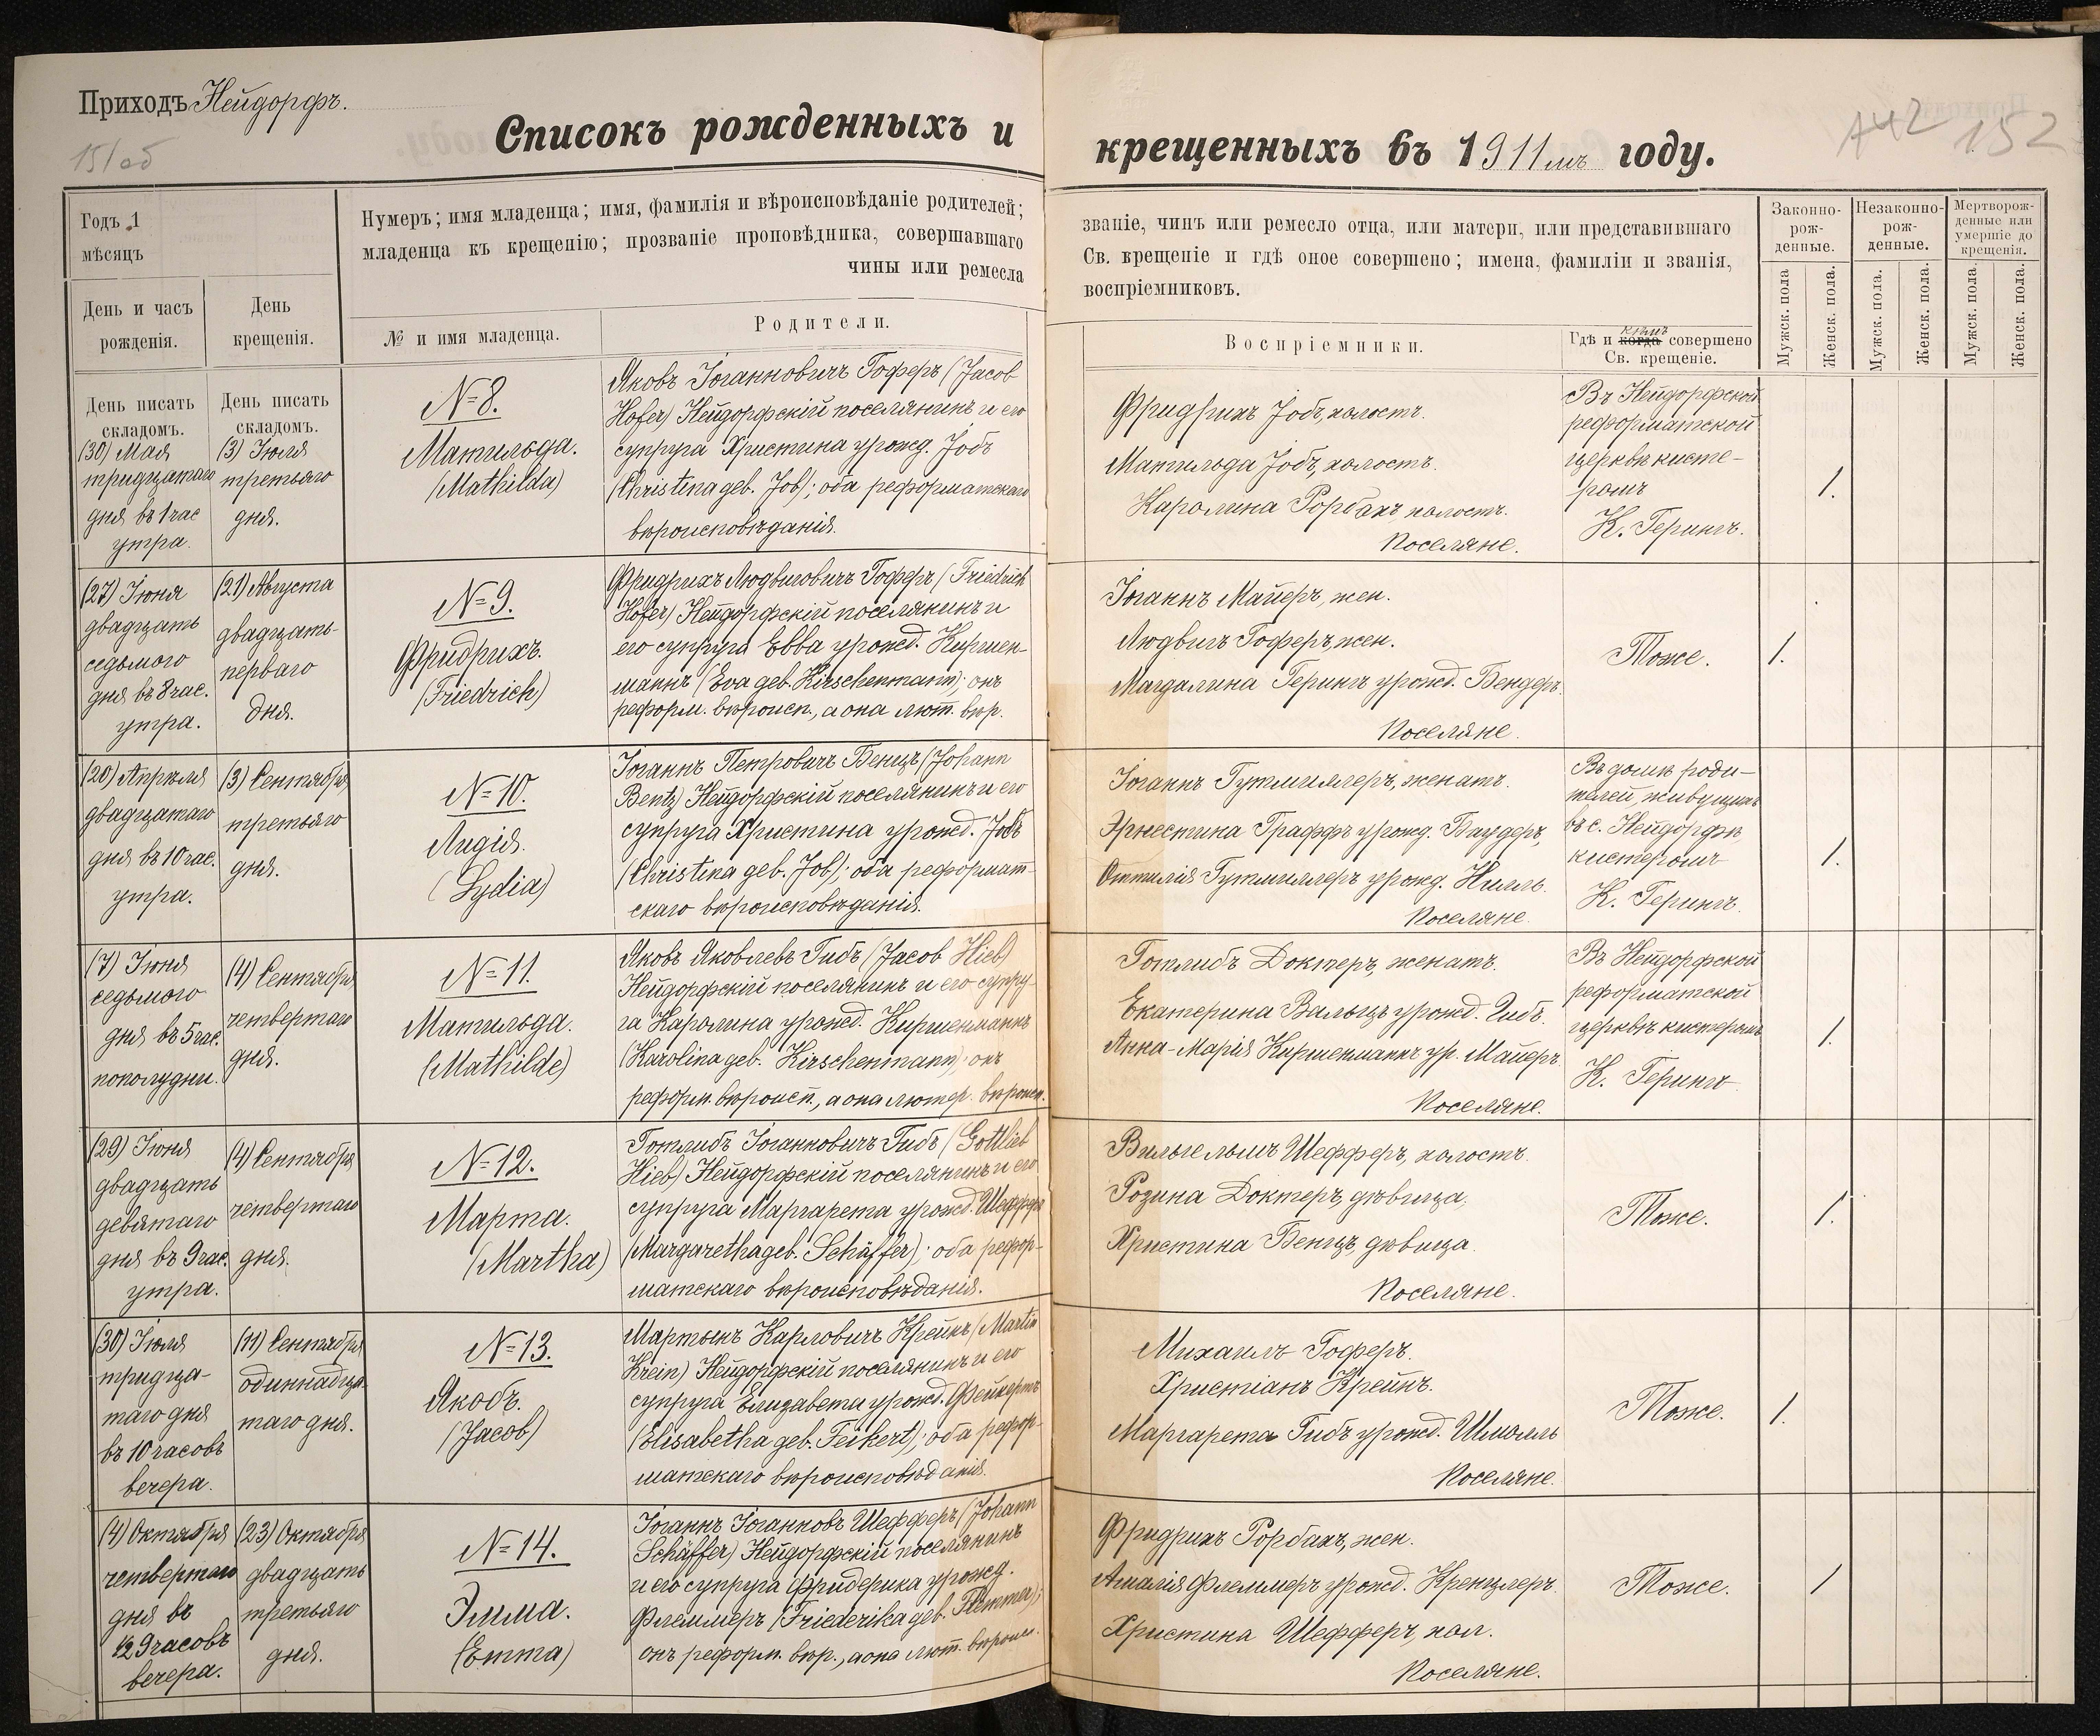 Приходъ Нейдорфъ.
151об
Списокъ рожденныхъ и
крещенныхъ въ 1911мъ году.
А42 152
Годъ 1
мѣсяцъ
Нумеръ; имя младенца; имя, фамилія и вѣроисповѣданіе родителей;
младенца къ крещенію; прозваніе проповѣдника, совершавшаго
чины или ремесла
званіе, чинъ или ремесло отца, или матери, или представившаго
Св. крещеніе и гдѣ оное совершено; имена, фамиліи и званія,
воспріемниковъ.
Законно-
рож-
денные.
Незаконно-
рож-
денные.
Мертворож-
денные или
умершіе до
крещенія.
День и часъ
рожденія.
День
крещенія.
№ и имя младенца.
Родители.
Воспріемники.
Гдѣ и когда кѣмъ совершено
Св. крещеніе.
Мужск. пола
Женск. пола.
Мужск. пола.
Женск. пола.
Мужск. пола.
Женск. пола.
День писать
складомъ.
День писать
складомъ.
(30) Мая
тридцатаго
дня въ 1 час
утра.
(3) Іюля
третьяго
дня.
№ 8.
Матильда.
(Mathilda)
Яковъ Іоганновичъ Гоферъ (Jacob
Hofer) Нейдорфскій поселянинъ и его
супруга Христина урожд. Іобъ
(Christina geb. Job); оба реформатскаго
вѣроисповѣданія.
Фридрихъ Іобъ, холостъ.
Матильда Іобъ, холостъ.
Каролина Рорбахъ, холостъ.
Поселяне.
Въ Нейдорфской
реформатской
церквѣ кисте-
ромъ
К. Герингъ.
1.
(27) Іюня
двадцать
седьмого
дня въ 8 час.
утра.
(21) Августа
двадцать-
перваго
дня.
№ 9.
Фридрихъ.
(Friedrich)
Фридрихъ Людвиговичъ Гофферъ (Friedrich
Hofer) Нейдорфскій поселянинъ и
его супруга Евва урожд. Киршен-
маннъ (Eva geb. Kirschenmann); онъ
реформ. вѣроисп., а она лют. вѣр.
Іоганнъ Майеръ, жен.
Людвигъ Гоферъ, жен.
Магдалина Герингъ урожд. Бендеръ.
Поселяне.
Тоже.
1.
(20) Апрѣля
двадцатаго
дня въ 10 час.
утра.
(3) Сентября
третьяго
дня.
№ 10.
Лидія.
(Lydia)
Іоганнъ Петровичъ Бенцъ (Johann
Bentz) Нейдорфскій поселянинъ и его
супруга Христина урожд. Іобъ
(Christina geb. Job); оба реформат-
скаго вѣроисповѣданія.
Іоганнъ Гутмиллеръ, женатъ.
Эрнестина Граффъ урожд. Баудеръ,
Оттилія Гутмиллеръ урожд. Нилль.
Поселяне.
Въ домѣ роди-
телей, живущихъ
въ с. Нейдорфѣ,
кистеромъ
К. Герингъ.
1.
(7) Іюня
седьмого
дня въ 5 час.
пополудни.
(4) Сентября
четвертаго
дня.
№ 11.
Матильда.
(Mathilde)
Яковъ Яковлевъ Гибъ (Jacob Hieb)
Нейдорфскій поселянинъ и его супру-
га Каролина урожд. Киршенманнъ
(Karolina geb. Kirschenmann); онъ
реформ. вѣроисп., а она лютер. вѣроисп.
Готлибъ Доктеръ, женатъ.
Екатерина Вальцъ урожд. Гибъ.
Анна-Марія Киршенманнъ ур. Майеръ.
Поселяне.
Въ Нейдорфской
реформатской
церквѣ кистеромъ
К. Герингъ
1.
(29) Іюня
двадцать
девятаго
дня въ 9 час.
утра.
(4) Сентября
четвертаго
дня.
№ 12.
Марта.
(Martha)
Готлибъ Іоганновичъ Гибъ (Gottlieb
Hieb) Нейдорфскій поселянинъ и его
супруга Маргарета урожд. Шефферъ
(Margaretha geb. Schäffer); оба рефор-
матскаго вѣроисповѣданія.
Вильгельмъ Шефферъ, холостъ.
Розина Доктеръ, дѣвица,
Христина Бенцъ, дѣвица.
Поселяне.
Тоже.
1.
(30) Іюля
тридца-
таго дня
въ 10 часовъ
вечера.
(11) Сентября
одиннадца-
таго дня.
№ 13.
Якобъ.
(Jacob)
Мартынъ Карловичъ Крейнъ (Martin
Krein) Нейдорфскій поселянинъ и его
супруга Елизавета урожд. Фейкертъ
(Elisabetha geb. Feikert); оба рефор-
матскаго вѣроисповѣданія.
Михаилъ Гоферъ.
Христіанъ Крейнъ.
Маргарета Гибъ урожд. Шмолль
Поселяне.
Тоже.
1.
(4) Октября
четвертаго
дня въ
1/2 9 часовъ
вечера.
(23) Октября
двадцать
третьяго
дня.
№ 14.
Эмма.
(Emma)
Іоганнъ Іоганновъ Шефферъ (Johann
Schäffer) Нейдорфскій поселянинъ
и его супруга Фридерика урожд.
Флеммеръ (Friederika geb. Flemmer);
онъ реформ. вѣр., а она лют. вѣроисп.
Фридрихъ Рорбахъ, жен.
Амалія Флеммеръ урожд. Кренцлеръ.
Христина Шефферъ, хол.
Поселяне.
Тоже.
1